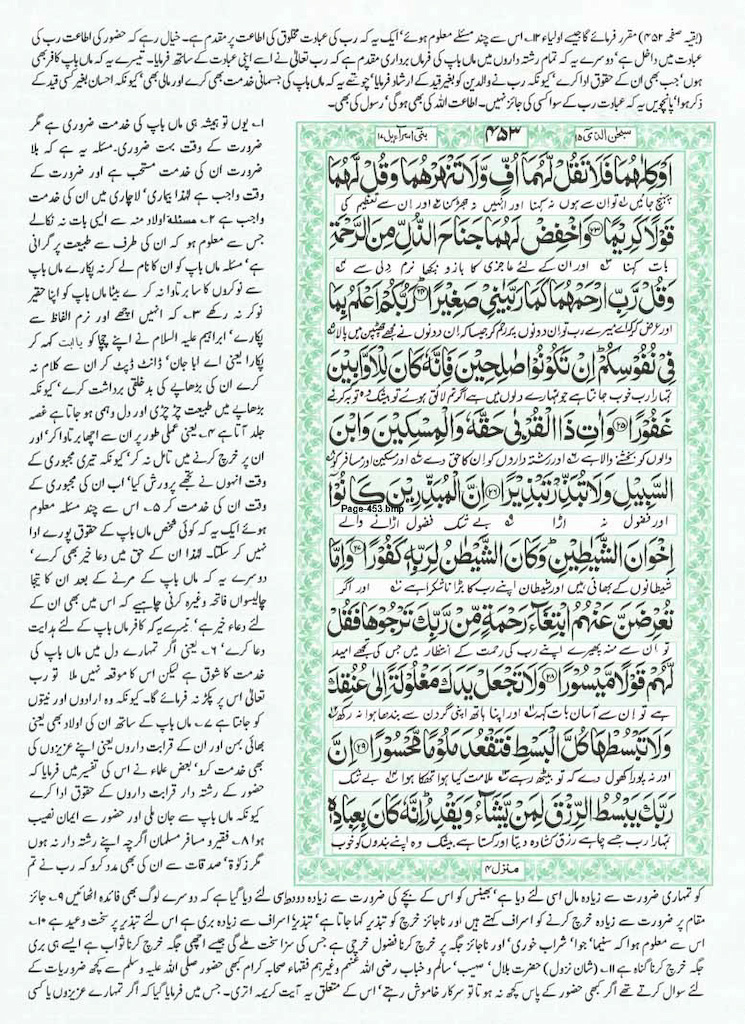 (بقیہ صفحہ ۴۵۲) مقرر فرمائے گا جیسے اولیاء ۱۲۔ اس سے چند مسئلے معلوم ہوئے' ایک یہ کہ رب کی عبادت مخلوق کی اطاعت پر مقدم ہے۔ خیال رہے کہ حضور کی اطاعت رب کی
عبادت میں داخل ہے' دوسرے یہ کہ تمام رشتہ داروں میں ماں باپ کی فرماں برداری مقدم ہے کہ رب تعالیٰ نے اسے اپنی عبادت کے ساتھ فرمایا۔ تیسرے یہ کہ ماں باپ کافر بھی
ہوں' جب بھی ان کے حقوق ادا کرے' کیونکہ رب نے والدین کو بغیر قید کے ارشاد فرمایا' چوتھے یہ کہ ماں باپ کی جسمانی خدمت بھی کرے اور مالی بھی' کیونکہ احسان بغیر کسی قید کے
ذکر ہوا' پانچویں یہ کہ عبادت رب کے سوا کسی کی جائز نہیں۔ اطاعت اللہ کی بھی ہوگی' رسول کی بھی۔
سبحٰن الذی ۱۵
۴۵۳
بنی اسرآءیل ۱۷
اَوْ كِلٰهُمَا فَلَا تَقُلْ لَّهُمَاۤ اُفٍّ وَّلَا تَنْهَرْهُمَا وَقُلْ لَّهُمَا
پہنچ جائیں تو ان سے ہوں نہ کہنا اور انہیں نہ جھڑکنا اور ان سے تعظیم کی
قَوْلًا كَرِیْمًا ﴿۲۳﴾ وَاخْفِضْ لَهُمَا جَنَاحَ الذُّلِّ مِنَ الرَّحْمَةِ
بات کہنا اور ان کے لئے عاجزی کا بازو بچھا نرم دلی سے
وَقُلْ رَّبِّ ارْحَمْهُمَا كَمَا رَبَّیٰنِیْ صَغِیْرًا ﴿۲۴﴾ رَبُّكُمْ اَعْلَمُ بِمَا
اور عرض کر کہ اے میرے رب تو ان دونوں پر رحم کر جیسا کہ ان دونوں نے مجھے چھٹپن میں پالا
فِیْ نُفُوْسِكُمْ ؕ اِنْ تَكُوْنُوْا صٰلِحِیْنَ فَاِنَّهٗ كَانَ لِلْاَوَّابِیْنَ
تمہارا رب خوب جانتا ہے جو تمہارے دلوں میں ہے اگر تم لائق ہوئے تو بیشک وہ توبہ کرنے
غَفُوْرًا ﴿۲۵﴾ وَاٰتِ ذَا الْقُرْبٰی حَقَّهٗ وَالْمِسْكِیْنَ وَابْنَ
والوں کو بخشنے والا ہے اور رشتہ داروں کو ان کا حق دے اور مسکین اور مسافر کو
السَّبِیْلِ وَلَا تُبَذِّرْ تَبْذِیْرًا ﴿۲۶﴾ اِنَّ الْمُبَذِّرِیْنَ كَانُوْۤا
Page-453.bmp
اور فضول نہ اڑا بے شک فضول اڑانے والے
اِخْوَانَ الشَّیٰطِیْنِ ؕ وَكَانَ الشَّیْطٰنُ لِرَبِّهٖ كَفُوْرًا ﴿۲۷﴾ وَاِمَّا
شیطانوں کے بھائی ہیں اور شیطان اپنے رب کا بڑا ناشکرا ہے اور اگر
تُعْرِضَنَّ عَنْهُمُ ابْتِغَآءَ رَحْمَةٍ مِّنْ رَّبِّكَ تَرْجُوْهَا فَقُلْ
تو ان سے منہ پھیرے اپنے رب کی رحمت کے انتظار میں جس کی تجھے امید
لَّهُمْ قَوْلًا مَّیْسُوْرًا ﴿۲۸﴾ وَلَا تَجْعَلْ یَدَكَ مَغْلُوْلَةً اِلٰی عُنُقِكَ
ہے تو ان سے آسان بات کہہ اور اپنا ہاتھ اپنی گردن سے بندھا ہوا نہ رکھ
وَلَا تَبْسُطْهَا كُلَّ الْبَسْطِ فَتَقْعُدَ مَلُوْمًا مَّحْسُوْرًا ﴿۲۹﴾ اِنَّ
اور نہ پورا کھول دے کہ تو بیٹھ رہے ملامت کیا ہوا تھکا ہوا بے شک
رَبَّكَ یَبْسُطُ الرِّزْقَ لِمَنْ یَّشَآءُ وَیَقْدِرُ ؕ اِنَّهٗ كَانَ بِعِبَادِهٖ
تمہارا رب جسے چاہے رزق کشادہ دیتا اور کستا ہے بیشک وہ اپنے بندوں کو خوب
منزل ۴
۱۔ یوں تو ہمیشہ ہی ماں باپ کی خدمت ضروری ہے مگر
ضرورت کے وقت بہت ضروری۔ مسئلہ یہ ہے کہ بلا
ضرورت ان کی خدمت مستحب ہے اور ضرورت کے
وقت واجب ہے لہٰذا بیماری' لاچاری میں ان کی خدمت
واجب ہے ۲۔ مسئلہ اولاد منہ سے ایسی بات نہ نکالے
جس سے معلوم ہو کہ ان کی طرف سے طبیعت پر گرانی
ہے' مسئلہ ماں باپ کو ان کا نام لے کر نہ پکارے ماں باپ
سے نوکروں کا سا برتاوا نہ کرے بیٹا ماں باپ کو اپنا حقیر
نوکر نہ رکھے ۳۔ کہ انہیں اچھے اور نرم الفاظ سے
پکارے' ابراہیم علیہ السلام نے اپنے چچا کو یاابت کہہ کر
پکارا یعنی اے ابا جان' ڈانٹ ڈپٹ کر ان سے کلام نہ
کرے ان کی بڑھاپے کی بدخلقی برداشت کرے' کیونکہ
بڑھاپے میں طبیعت چڑچڑی اور دل وہمی ہو جاتا ہے غصہ
جلد آتا ہے ۴۔ یعنی عملی طور پر ان سے اچھا برتاوا کر' اور
ان پر خرچ کرنے میں تامل نہ کر' کیونکہ تیری مجبوری کے
وقت انہوں نے تجھے پرورش کیا' اب ان کی مجبوری کے
وقت ان کی خدمت کر ۵۔ اس سے چند مسئلہ معلوم
ہوئے ایک یہ کہ کوئی شخص ماں باپ کے حقوق پورے ادا
نہیں کر سکتا۔ لہٰذا ان کے حق میں دعا خیر بھی کرے'
دوسرے یہ کہ ماں باپ کے مرنے کے بعد ان کا تیجا
چالیسواں فاتحہ وغیرہ کرنی چاہیے کہ اس میں بھی ان کے
لئے دعاء خیر ہے' تیسرے یہ کہ کافر ماں باپ کے لئے ہدایت
دعا کرے ۶۔ یعنی اگر تمہارے دل میں ماں باپ کی
خدمت کا شوق ہے لیکن اس کا موقعہ نہیں ملا تو رب
تعالیٰ اس پر پکڑ نہ فرمائے گا۔ کیونکہ وہ ارادوں اور نیتوں
کو جانتا ہے ۷۔ ماں باپ کے ساتھ ان کی اولاد بھی یعنی
بھائی بہن اور ان کے قرابت داروں یعنی اپنے عزیزوں کی
بھی خدمت کرو' بعض علماء نے اس کی تفسیر میں فرمایا کہ
حضور کے رشتہ دار قرابت داروں کے حقوق ادا کرے
کیونکہ ماں باپ سے جان ملی اور حضور سے ایمان نصیب
ہوا ۸۔ فقیر و مسافر مسلمان اگرچہ اپنے رشتہ دار نہ ہوں
مگر زکوٰۃ' صدقات سے ان کی بھی مدد کرو کہ رب نے تم
کو تمہاری ضرورت سے زیادہ مال اسی لئے دیا ہے' بھینس کو اس کے بچے کی ضرورت سے زیادہ دودھ اسی لئے دیا گیا ہے کہ دوسرے لوگ بھی فائدہ اٹھائیں ۹۔ جائز
مقام پر ضرورت سے زیادہ خرچ کرنے کو اسراف کہتے ہیں اور ناجائز خرچ کو تبذیر کہا جاتا ہے' تبذیر' اسراف سے زیادہ بری ہے اس لئے تبذیر پر سخت وعید ہے ۱۰۔
اس سے معلوم ہوا کہ سنیما' جوا' شراب خوری' اور ناجائز جگہ پر خرچ کرنا فضول خرچی ہے جس کی سزا سخت ملے گی جیسے اچھی جگہ خرچ کرنا ثواب ہے ایسے ہی بری
جگہ خرچ کرنا گناہ ہے ۱۱۔ (شان نزول) حضرت بلال' صہیب' سالم و خباب رضی اللہ عنہم وغیرہم فقہاء صحابہ کرام کبھی حضور صلی اللہ علیہ وسلم سے کچھ ضروریات کے
لئے سوال کرتے تھے اگر کبھی حضور کے پاس کچھ نہ ہوتا تو سرکار خاموش رہتے' اس کے متعلق یہ آیت کریمہ اتری۔ جس میں فرمایا گیا کہ اگر تمہارے عزیزوں یا کسی